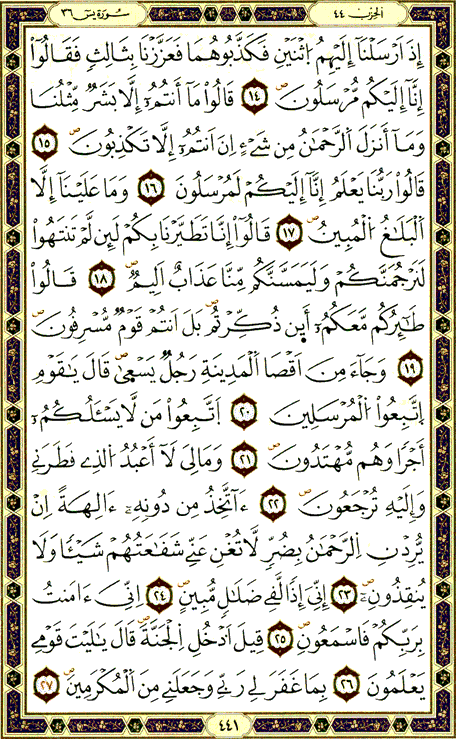 الحزب ٤٤
سورة يس ٣٦
إِذَ اَرْسَلْنَآ إِلَيْهِمُ اُثْنَيْنِ فَكَذَّبُوهُمَا فَعَزَّزْنَا بِثَالِثٍ فَقَالُوٓاْ
إِنَّآ إِلَيْكُم مُّرْسَلُونَ ١٤ قَالُواْ مَآ أَنتُمُۥٓ إِلَّا بَشَرٌ مِّثْلُنَا
وَمَآ أَنزَلَ اَ۬لرَّحْمَٰنُ مِن شَےْءٍ اِنَ اَنتُمُۥٓ إِلَّا تَكْذِبُونَ ١٥
قَالُواْ رَبُّنَا يَعْلَمُ إِنَّآ إِلَيْكُمْ لَمُرْسَلُونَ ١٦ وَمَا عَلَيْنَآ إَلَّا
اَ۬لْبَلَٰغُ اُ۬لْمُبِينُ ١٧ قَالُوٓاْ إِنَّا تَطَيَّرْنَا بِكُمْ لَئِن لَّمْ تَنتَهُواْ
لَنَرْجُمَنَّكُمْ وَلَيَمَسَّنَّكُم مِّنَّا عَذَابٌ اَلِيمٌ ١٨ قَالُواْ
طَٰٓئِرُكُم مَّعَكُمُۥٓ أَيِن ذُكِّرْتُم بَلَ اَنتُمْ قَوْمٌ مُّسْرِفُونَ
١٩ وَجَآءَ مِنَ اَقْصَا اَ۬لْمَدِينَةِ رَجُلٌ يَسْعَىٰ قَالَ يَٰقَوْمِ
اِ۪تَّبِعُواْ اُ۬لْمُرْسَلِينَ ٢٠ اَ۪تَّبِعُواْ مَن لَّا يَسْـَٔلُكُمُۥٓ
أَجْرًا وَهُم مُّهْتَدُونَ ٢١ وَمَالِىَ لَآ أَعْبُدُ اُ۬لذِے فَطَرَنِے
وَإِلَيْهِ تُرْجَعُونَ ٢٢ ءَآتَّخِذُ مِن دُونِهِۦٓ ءَالِهَةً اِنْ
يُّرِدْنِ اِ۬لرَّحْمَٰنُ بِضُرٍّ لَّا تُغْنِ عَنِّے شَفَٰعَتُهُمْ شَيْـًٔا وَلَا
يُنقِذُونِ ٢٣ إِنِّىَ إِذًا لَّفِے ضَلَٰلٍ مُّبِينٍ ٢٤ اِنِّىَ ءَامَنتُ
بِرَبِّكُمْ فَاسْمَعُونِ ٢٥ قِيلَ اَ۟دْخُلِ اِ۬لْجَنَّةَ قَالَ يَٰلَيْتَ قَوْمِے
يَعْلَمُونَ ٢٦ بِمَا غَفَرَ لِے رَبِّے وَجَعَلَنِے مِنَ اَ۬لْمُكْرَمِينَ ٢٧
٤٤١